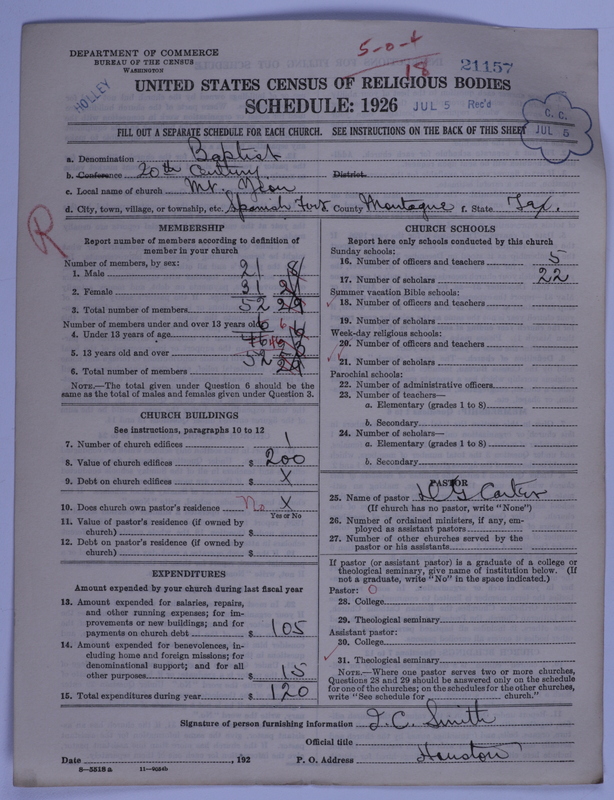 DEPARTMENT OF COMMERCE
BUREAU OF THE CENSUS
WASHINGTON
5-0-4
18
21157
HOLLEY
UNITED STATES CENSUS OF RELIGIOUS BODIES
SCHEDULE: 1926
JUL 5 Rec'd
C. C.
JUL 5
FILL OUT A SEPARATE SCHEDULE FOR EACH CHURCH. SEE INSTRUCTIONS ON THE BACK OF THIS SHEET
a. Denomination Baptist
b. Conference 20th Century District
c. Local name of church Mt. Zion
d. City, town, village, or township, etc. Spanish Fort County Montague f. State Tex.
R
MEMBERSHIP
Report number of members according to definition of member in your church
Number of members, by sex:
1. Male 21 8
2. Female 31 21
3. Total number of members 52 29
Number of members under and over 13 years old:
4. Under 13 years of age 6
5. 13 years old and over 46
6. Total number of members 52 29
NOTE.—The total given under Question 6 should be the same as the total of males and females given under Question 3.
CHURCH BUILDINGS
See instructions, paragraphs 10 to 12
7. Number of church edifices 1
8. Value of church edifices $ 200
9. Debt on church edifices $ X
10. Does church own pastor's residence No X
Yes or No
11. Value of pastor's residence (if owned by church) $
12. Debt on pastor's residence (if owned by church) $
EXPENDITURES
Amount expended by your church during last fiscal year
13. Amount expended for salaries, repairs, and other running expenses; for improvements or new buildings; and for payments on church debt $ 105
14. Amount expended for benevolences, including home and foreign missions; for denominational support; and for all other purposes $ 15
15. Total expenditures during year $ 120
CHURCH SCHOOLS
Report here only schools conducted by this church
Sunday schools:
16. Number of officers and teachers 5
17. Number of scholars 22
Summer vacation Bible schools:
18. Number of officers and teachers
19. Number of scholars
Week-day religious schools:
20. Number of officers and teachers
21. Number of scholars
Parochial schools:
22. Number of administrative officers
23. Number of teachers—
a. Elementary (grades 1 to 8)
b. Secondary
24. Number of scholars—
a. Elementary (grades 1 to 8)
b. Secondary
PASTOR
25. Name of pastor Carter
(If church has no pastor, write "None")
26. Number of ordained ministers, if any, employed as assistant pastors
27. Number of other churches served by the pastor or his assistants
If pastor (or assistant pastor) is a graduate of a college or theological seminary, give name of institution below. (If not a graduate, write "No" in the space indicated.)
Pastor: O
28. College
29. Theological seminary
Assistant pastor:
30. College
31. Theological seminary
NOTE.—Where one pastor serves two or more churches, Questions 28 and 29 should be answered only on the schedule for one of the churches; on the schedules for the other churches, write "See schedule for church."
Signature of person furnishing information J. C. Smith
Official title
Date , 192 P. O. Address Houston
8—5518 a 11—9054b